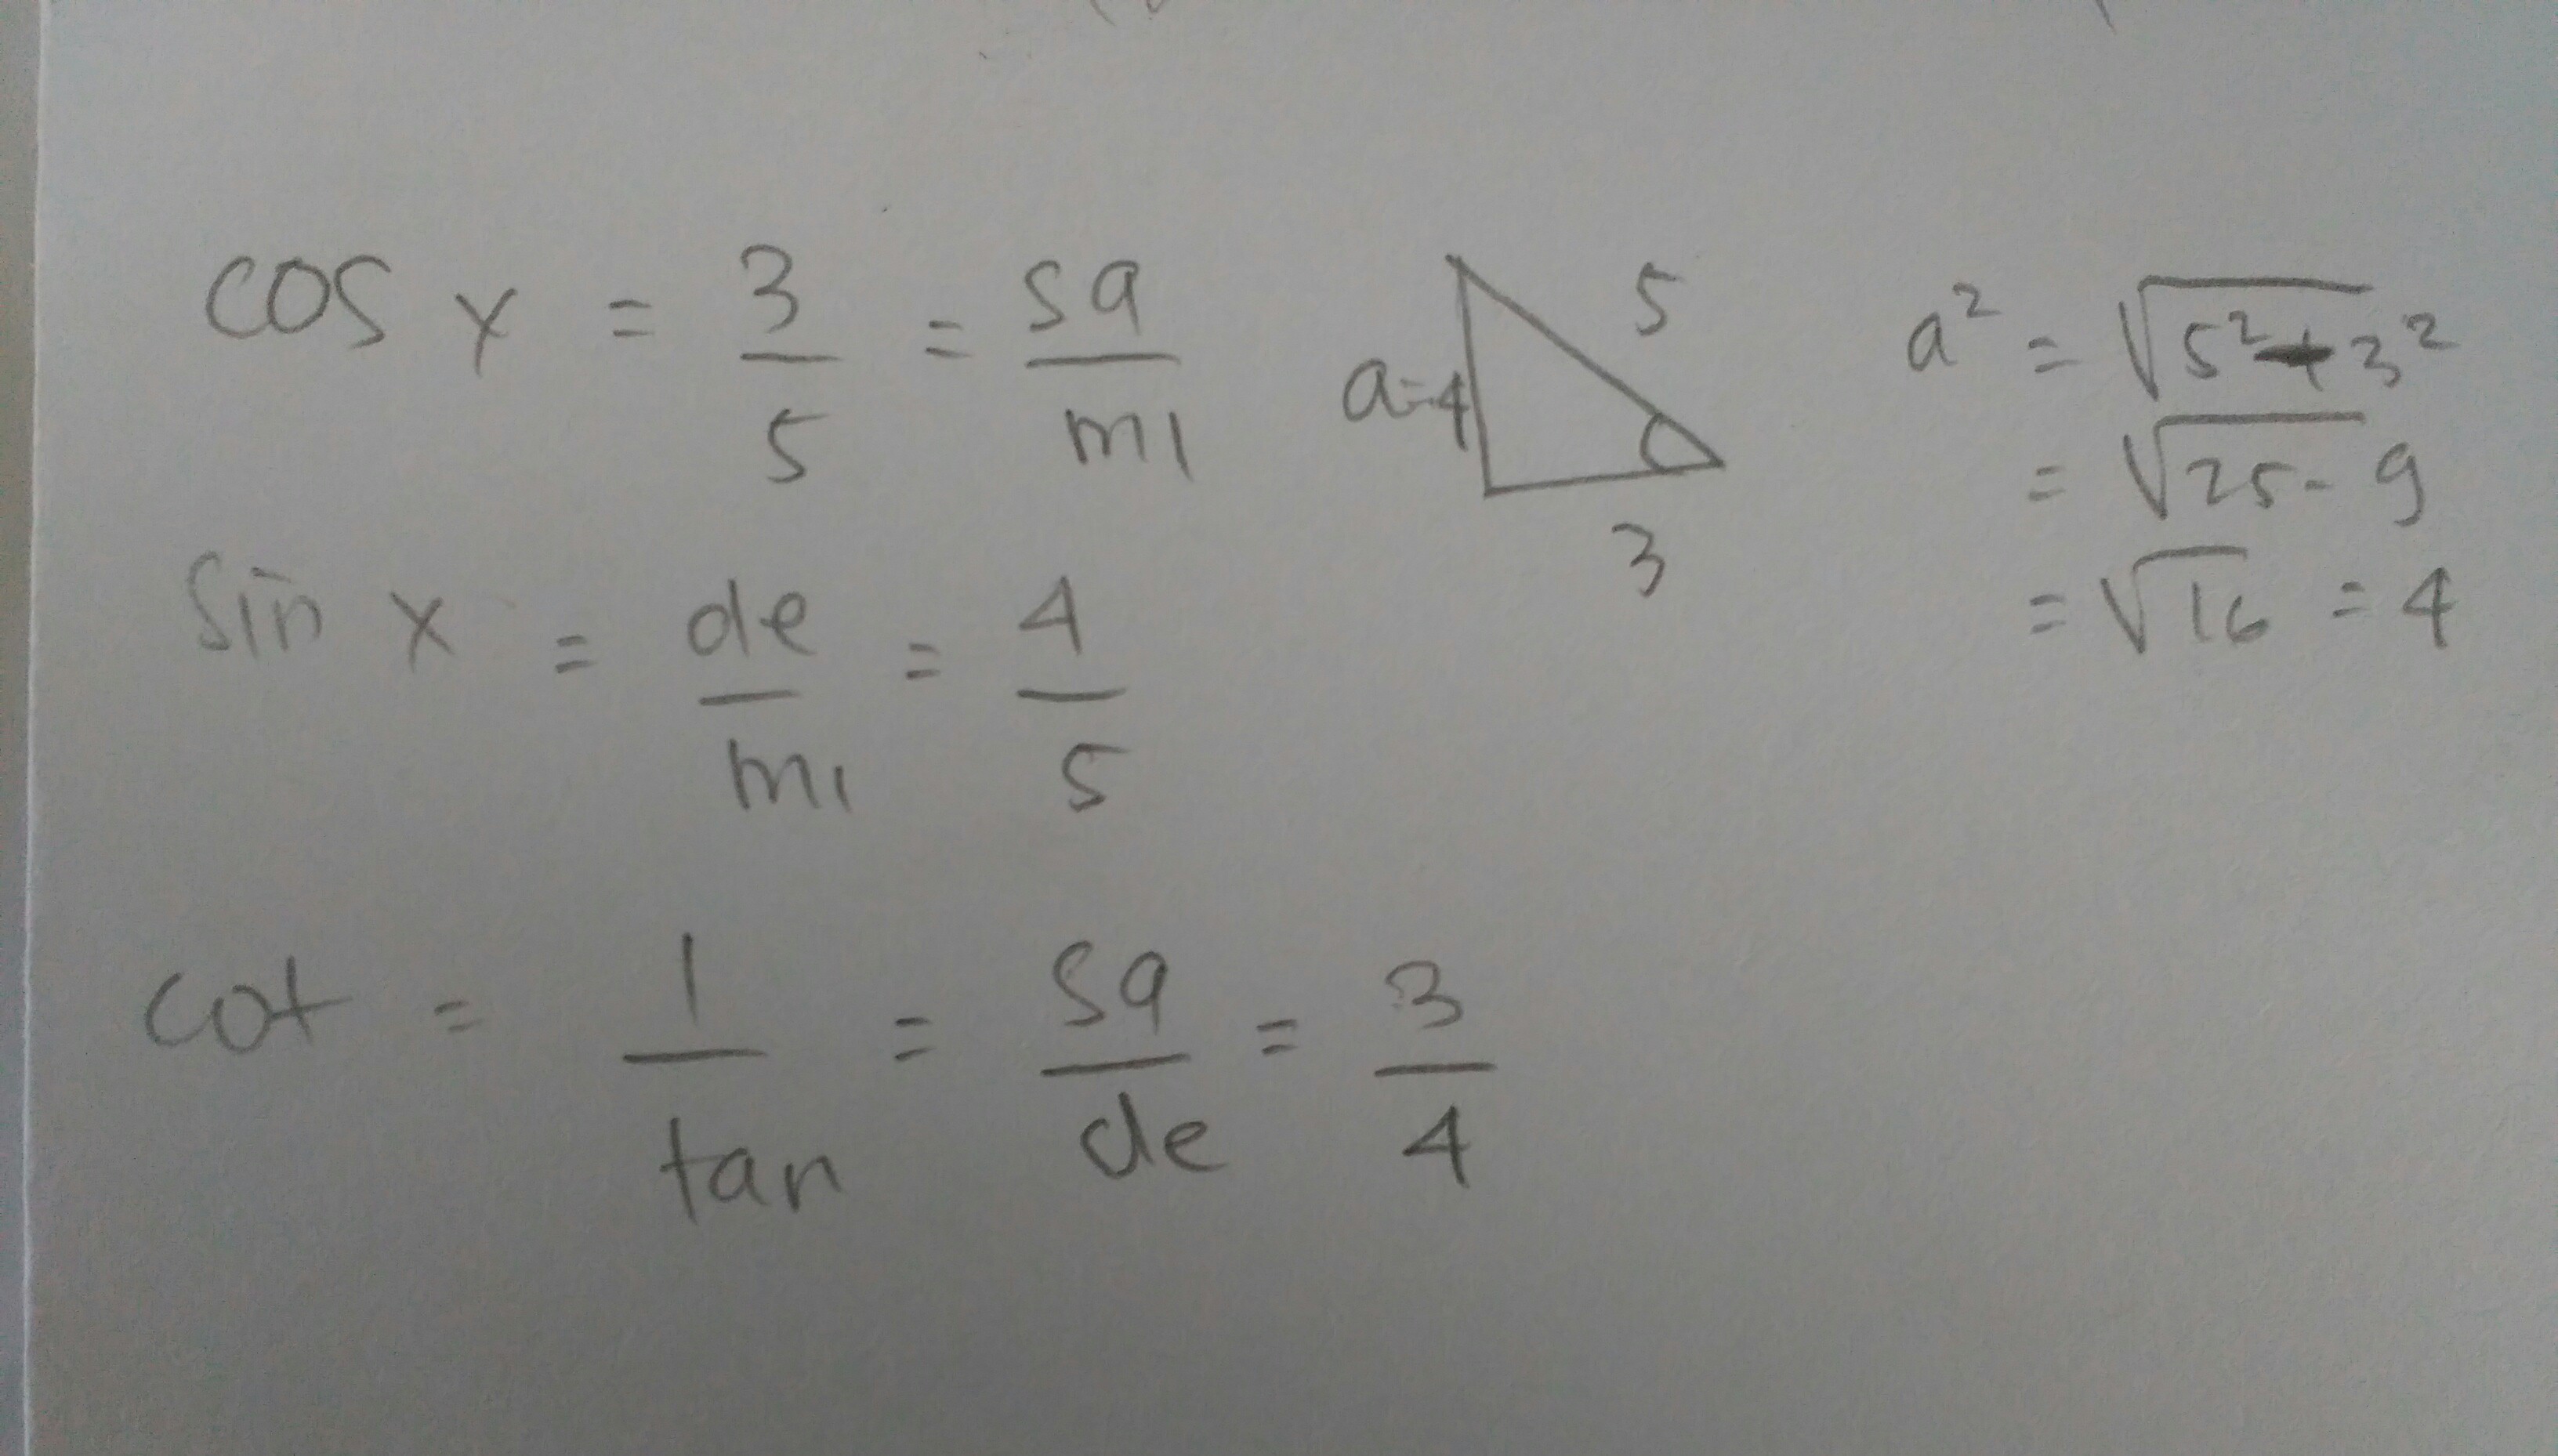 cos x = 3/5 = sa/mi
5
a=4
3
a² = √5²-3²
= √25-9
= √16 = 4
sin x = de/mi = 4/5
cot = 1/tan = sa/de = 3/4